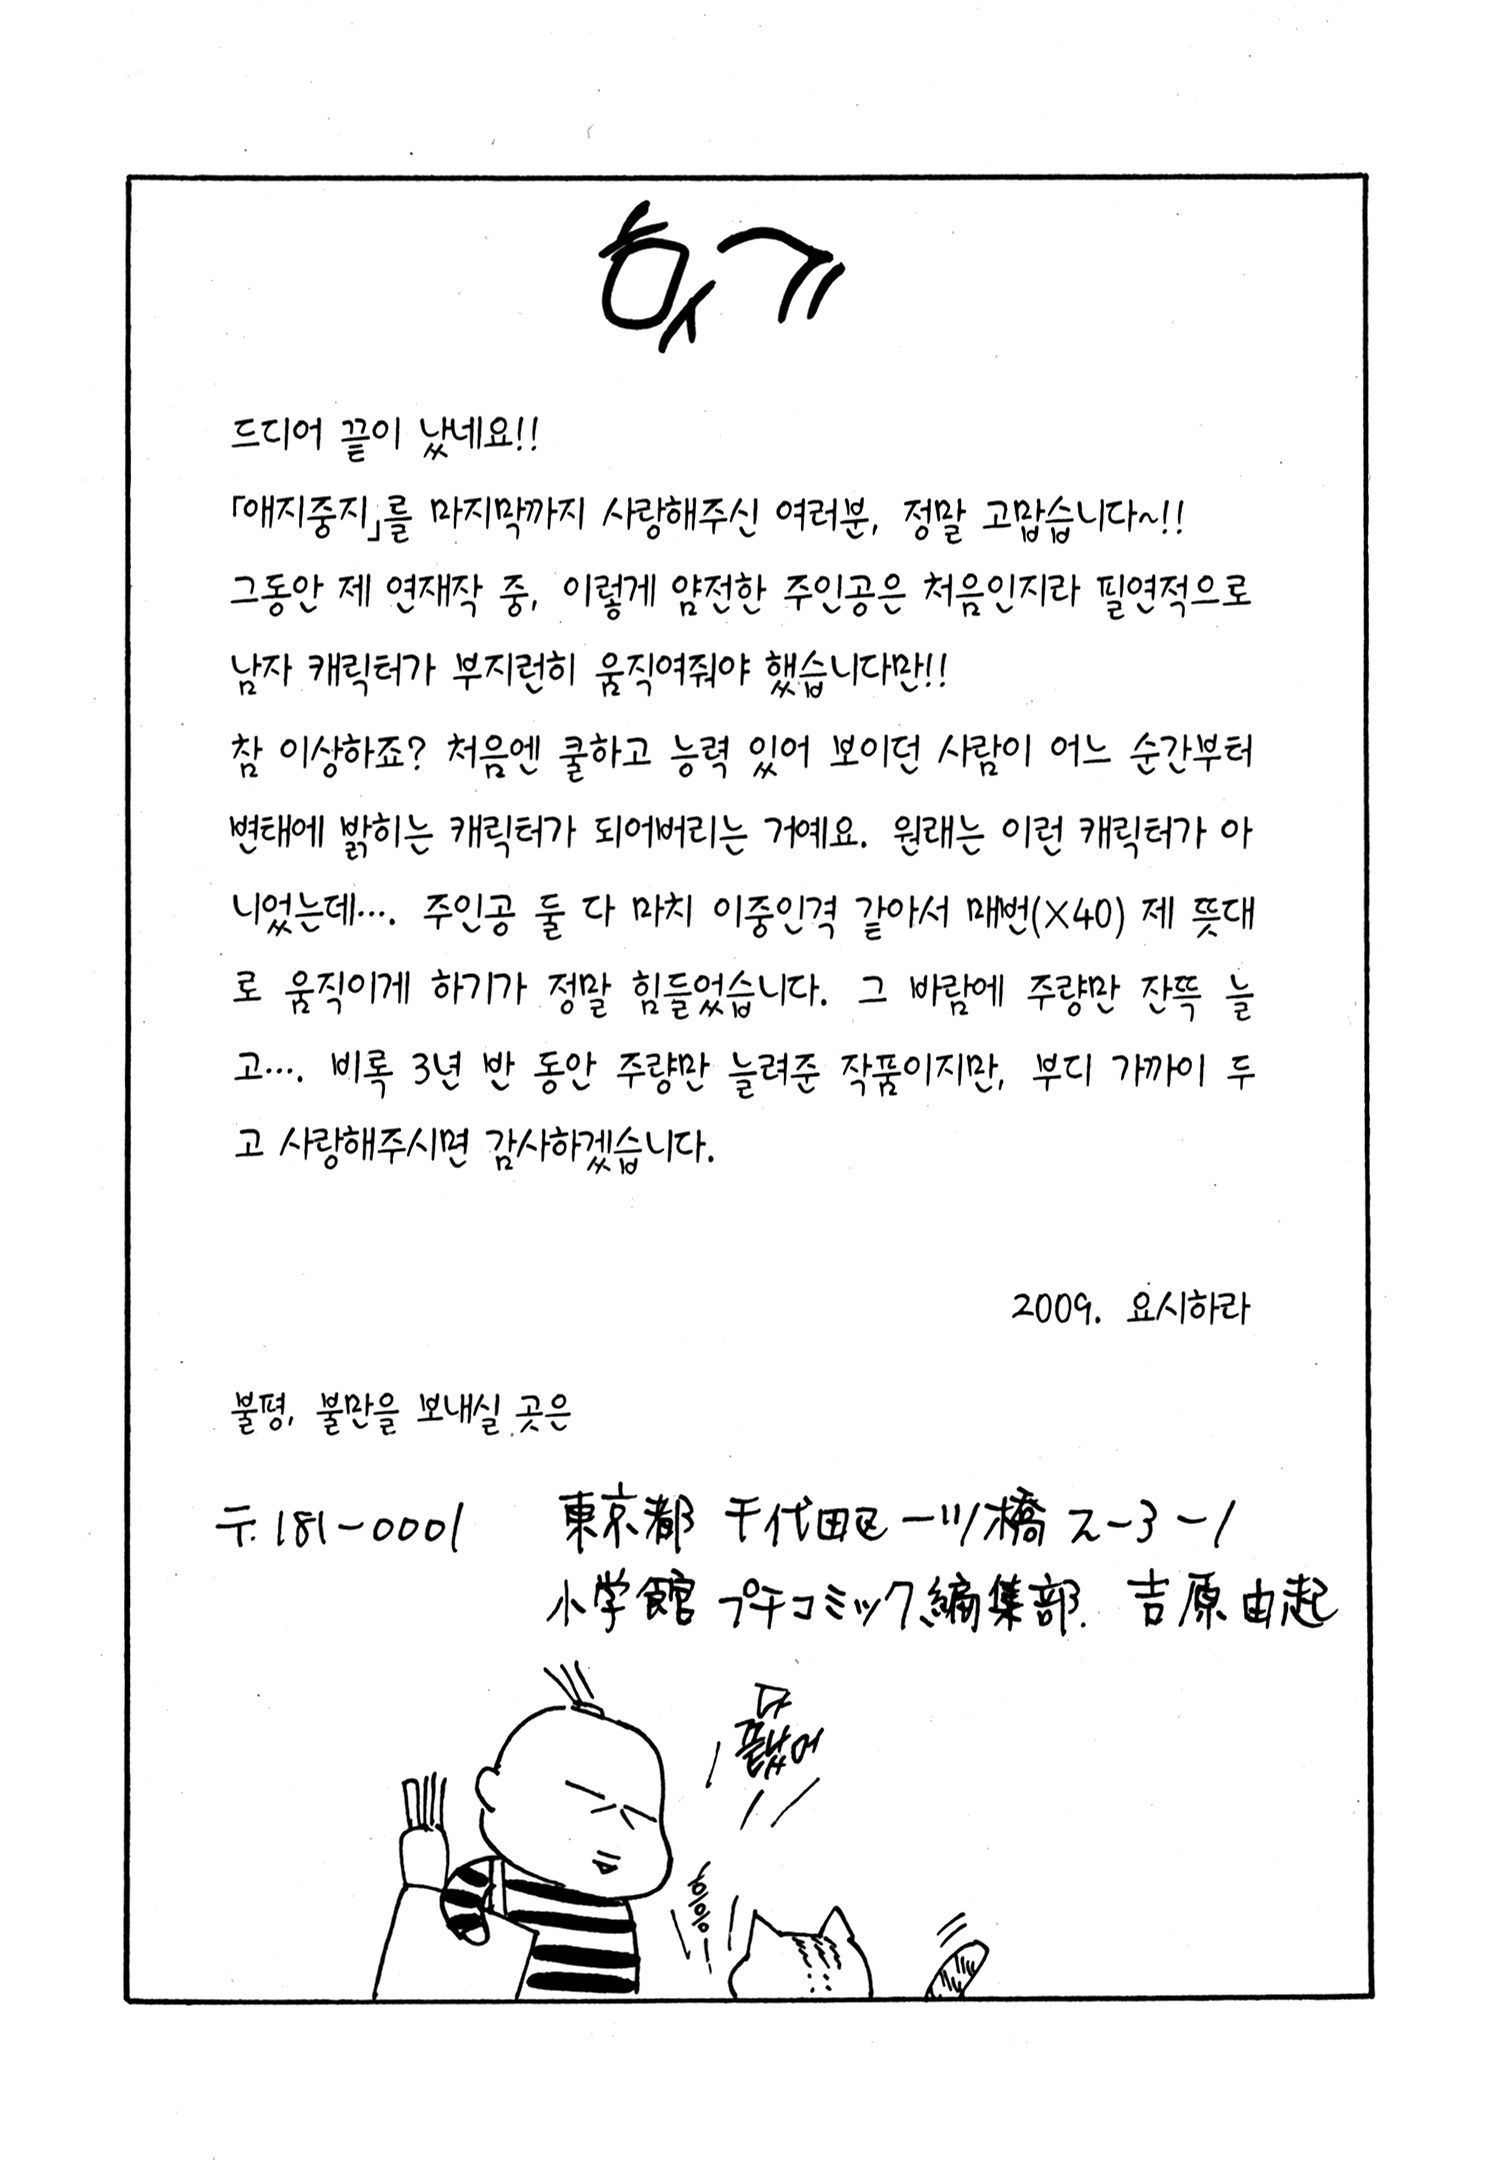 후기
드디어 끝이 났네요!!
「애지중지」를 마지막까지 사랑해주신 여러분, 정말 고맙습니다~!!
그동안 제 연재작 중, 이렇게 얌전한 주인공은 처음인지라 필연적으로
남자 캐릭터가 부지런히 움직여줘야 했습니다만!!
참 이상하죠? 처음엔 쿨하고 능력 있어 보이던 사람이 어느 순간부터
변태에 밝히는 캐릭터가 되어버리는 거예요. 원래는 이런 캐릭터가 아
니었는데…. 주인공 둘 다 마치 이중인격 같아서 매번(X40) 제 뜻대
로 움직이게 하기가 정말 힘들었습니다. 그 바람에 주량만 잔뜩 늘
고…. 비록 3년 반 동안 주량만 늘려준 작품이지만, 부디 가까이 두
고 사랑해주시면 감사하겠습니다.
2009. 요시하라
불평, 불만을 보내실 곳은
〒.181-0001 東京都 千代田区 一ツ橋 2-3-1
小学館 プチコミック編集部. 吉原由起
다
끝났어
흥흥~